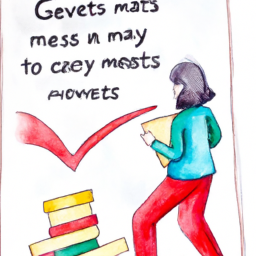 Gevets mats
mess n may
to cezy mests
POWETS